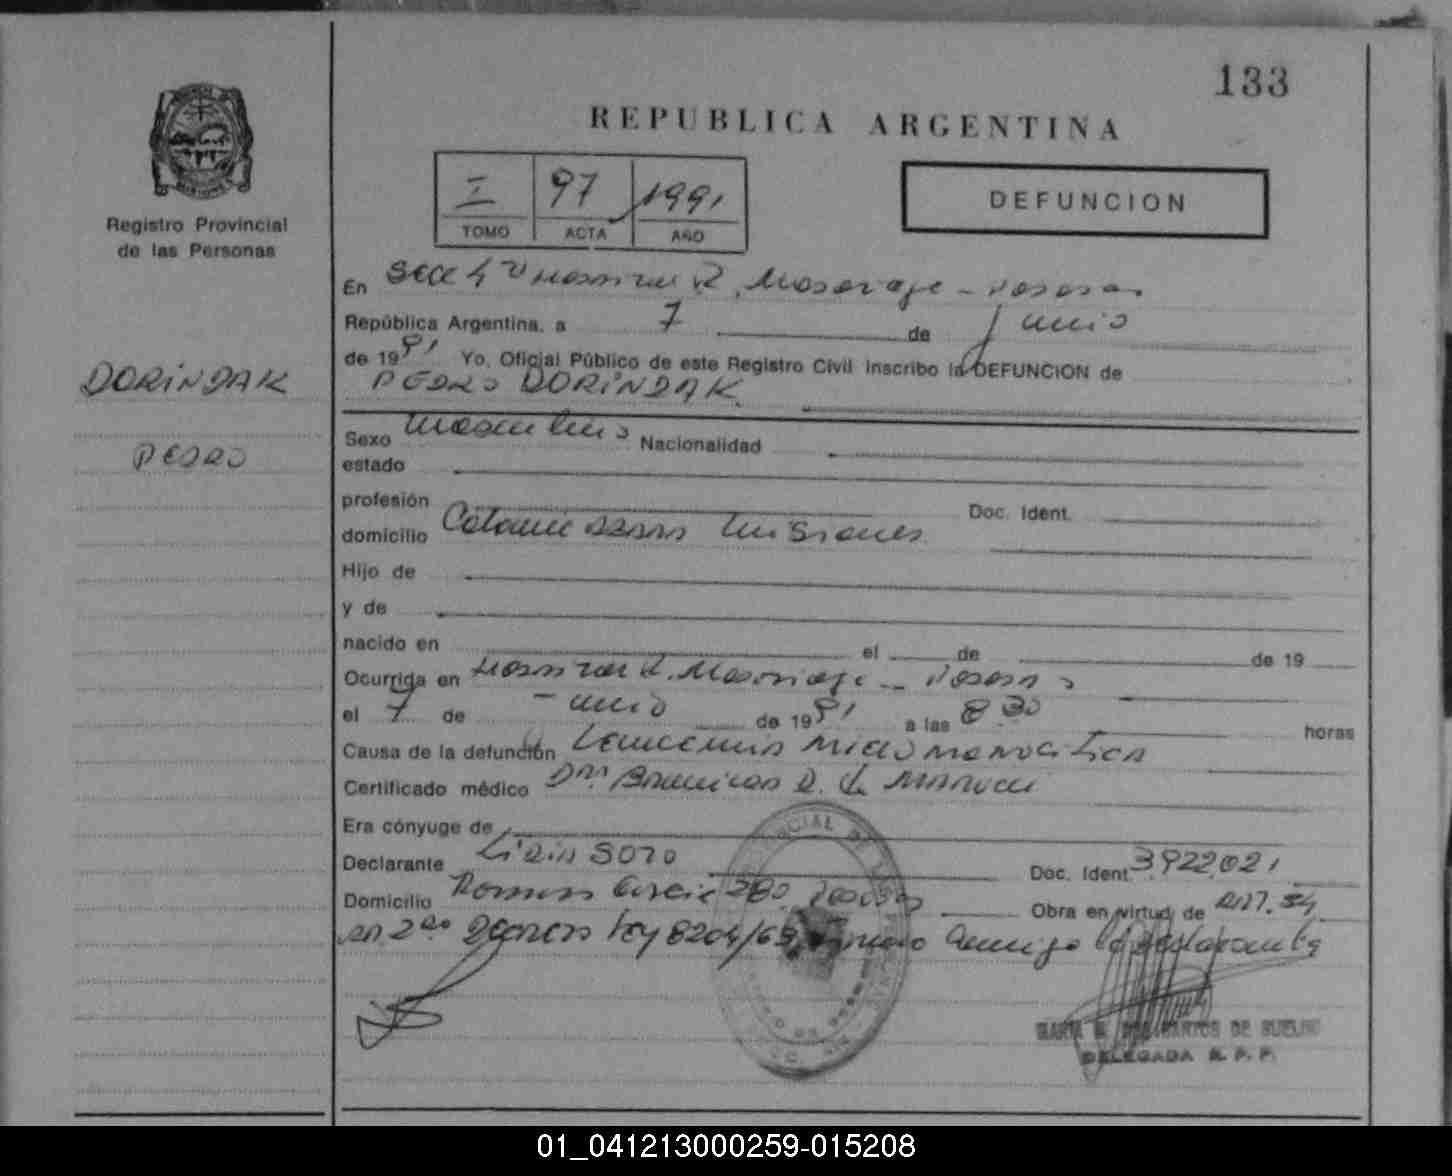 133
REPUBLICA ARGENTINA
I 97 1991
TOMO ACTA AÑO
DEFUNCION
Registro Provincial
de las Personas
En Secc 4ª Hospital R. Posadas
República Argentina, a 7 de Junio
de 1991 Yo, Oficial Público de este Registro Civil Inscribo la DEFUNCION de
PEDRO DORINDAK
DORINDAK
PEDRO
Sexo masculino Nacionalidad
estado
profesión Doc. Ident.
domicilio Misiones
Hijo de
y de
nacido en el de de 19
Ocurrida en Hospital R. Posadas
el 7 de Junio de 1991 a las 8 30 horas
Causa de la defunción Leucemia
Certificado médico Dra.
Era cónyuge de
Declarante SOTO Doc. Ident. 3.922.021
Domicilio 280 Posadas Obra en virtud de
Decreto Ley 8204/63 Firmando conmigo la declarante
DE
DELEGADA R. P. P.
01_041213000259-015208